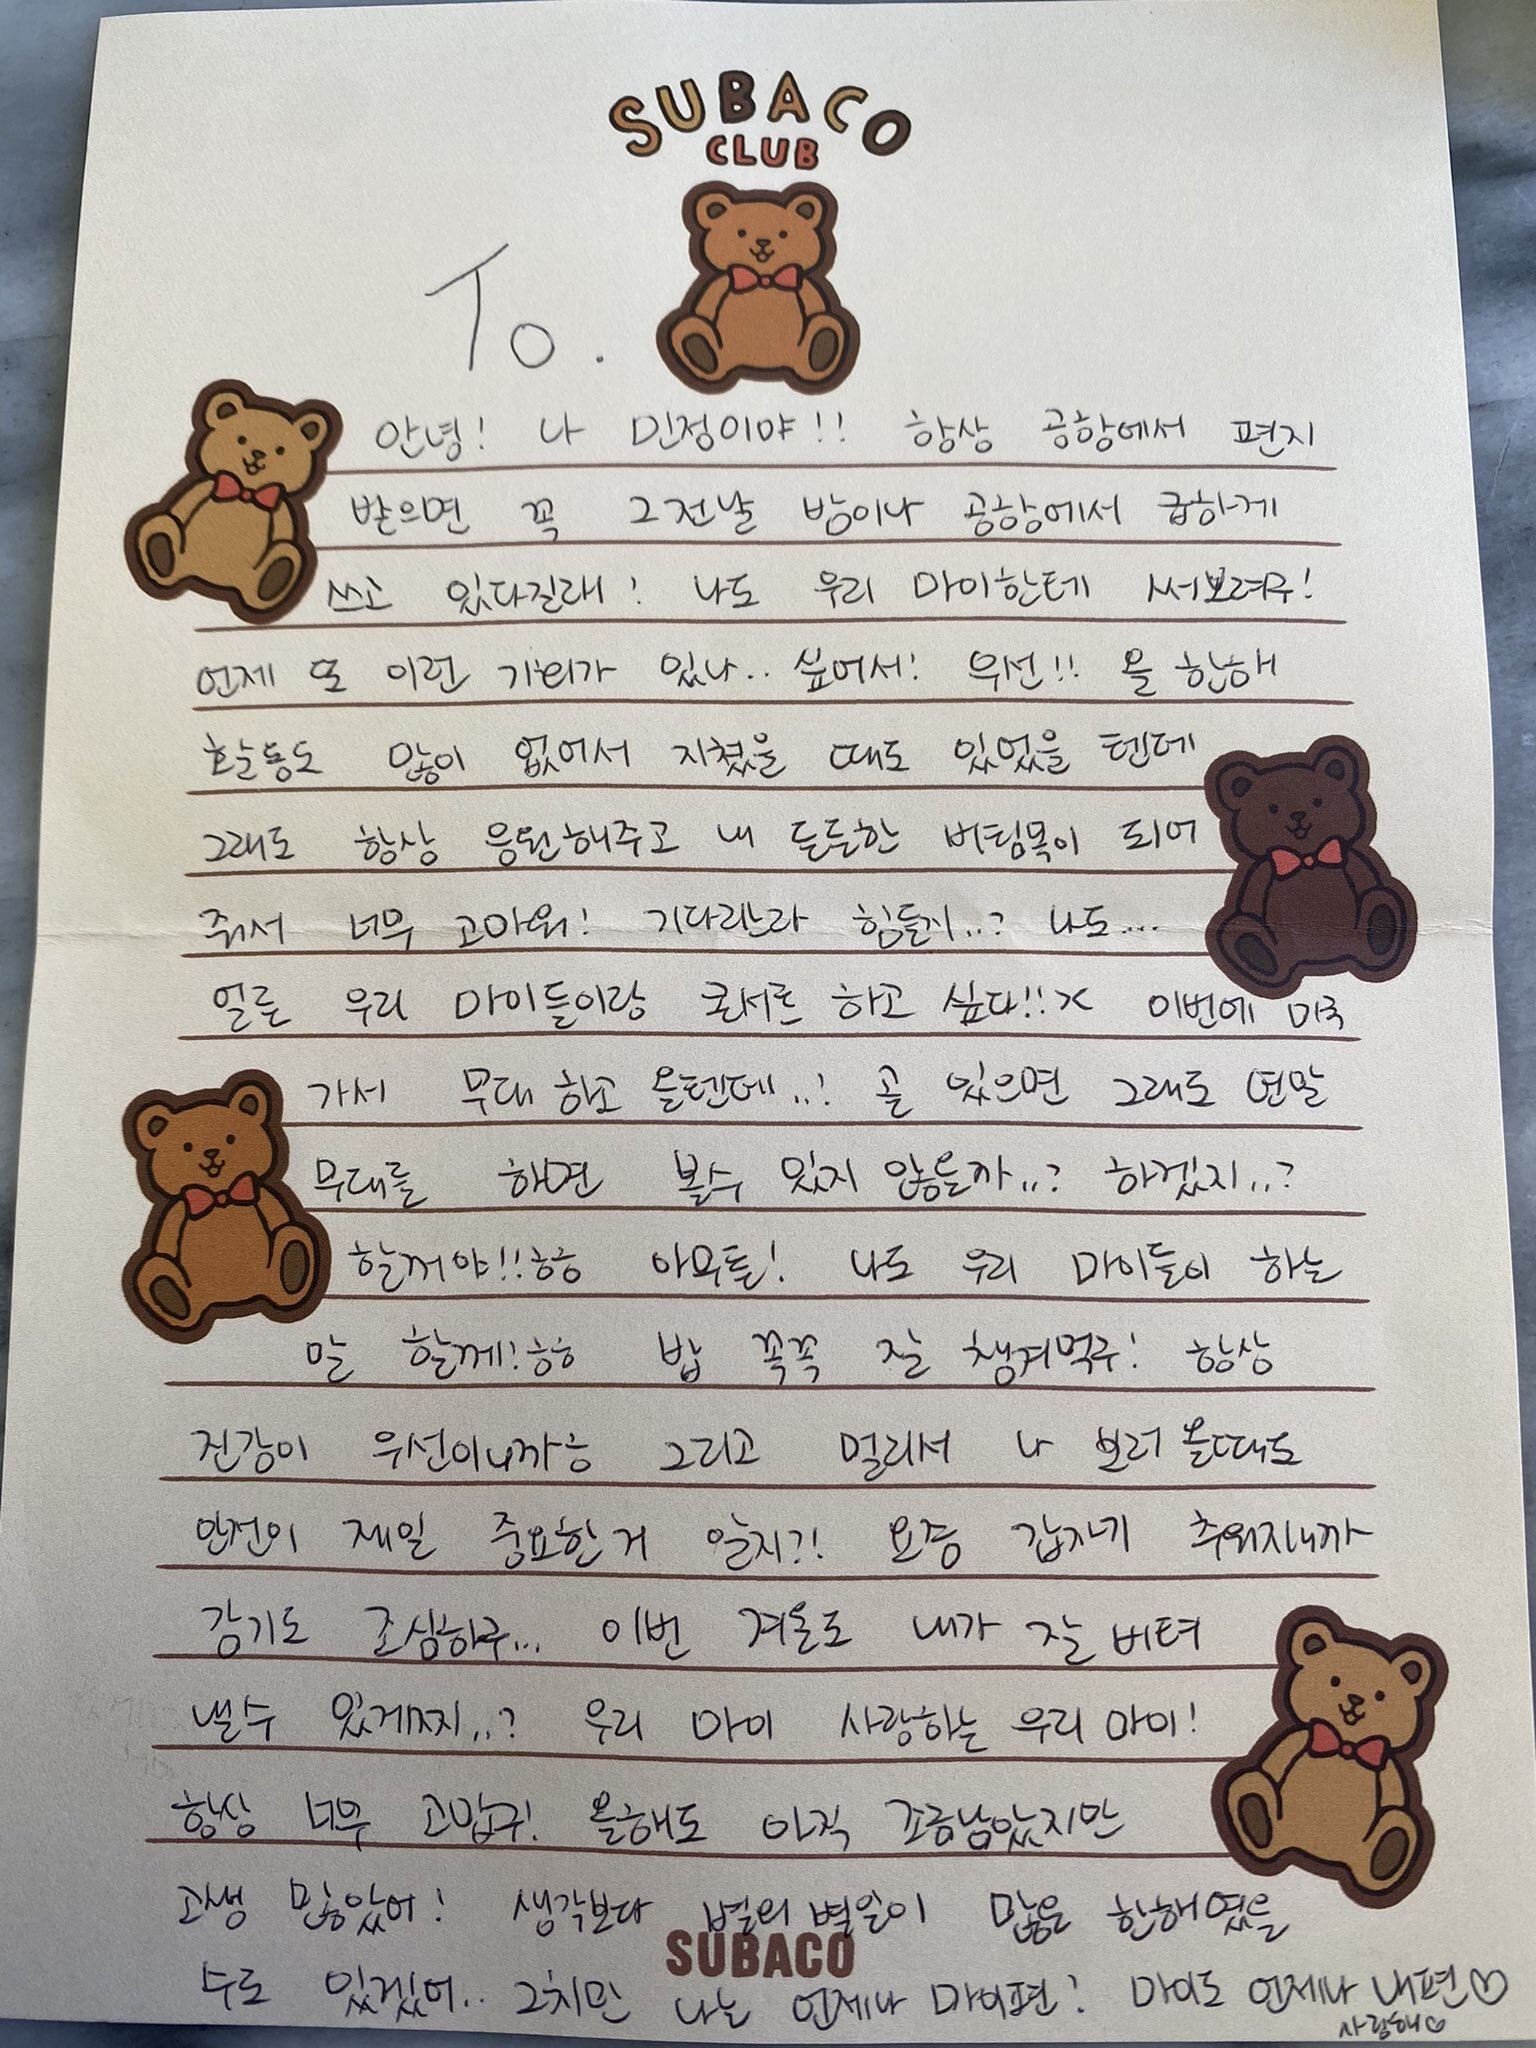 SUBACO
CLUB
To.
안녕! 나 민정이야!! 항상 공항에서 편지
받으면 꼭 그전날 밤이나 공항에서 급하게
쓰고 있다길래! 나도 우리 마이한테 써보려구!
언제 또 이런 기회가 있나.. 싶어서! 우선!! 올 한해
활동도 많이 없어서 지쳤을 때도 있었을 텐데
그래도 항상 응원해주고 내 든든한 버팀목이 되어
줘서 너무 고마워! 기다리느라 힘들지..? 나도....
얼른 우리 마이들이랑 콘서트 하고 싶다!! 이번에 미국
가서 무대 하고 올텐데..! 곧 있으면 그래도 연말
무대를 하면 볼수 있지 않을까..? 하겠지..?
할꺼야!!ㅎㅎ 아무튼! 나도 우리 마이들이 하는
말 할께!ㅎㅎ 밥 꼭꼭 잘 챙겨먹구! 항상
건강이 우선이니까ㅎ 그리고 멀리서 나 보러 올때도
안전이 제일 중요한거 알지?! 요즘 갑자기 추워지니까
감기도 조심하구... 이번 겨울도 내가 잘 버텨
낼수 있겠찌..? 우리 마이 사랑하는 우리 마이!
항상 너무 고맙구! 올해도 아직 조금남았지만
고생 많았어! 생각보다 별의 별일이 많은 한해였을
수도 있겠어.. 그치만 나는 언제나 마이편! 마이도 언제나 내편♡
사랑해♡
SUBACO